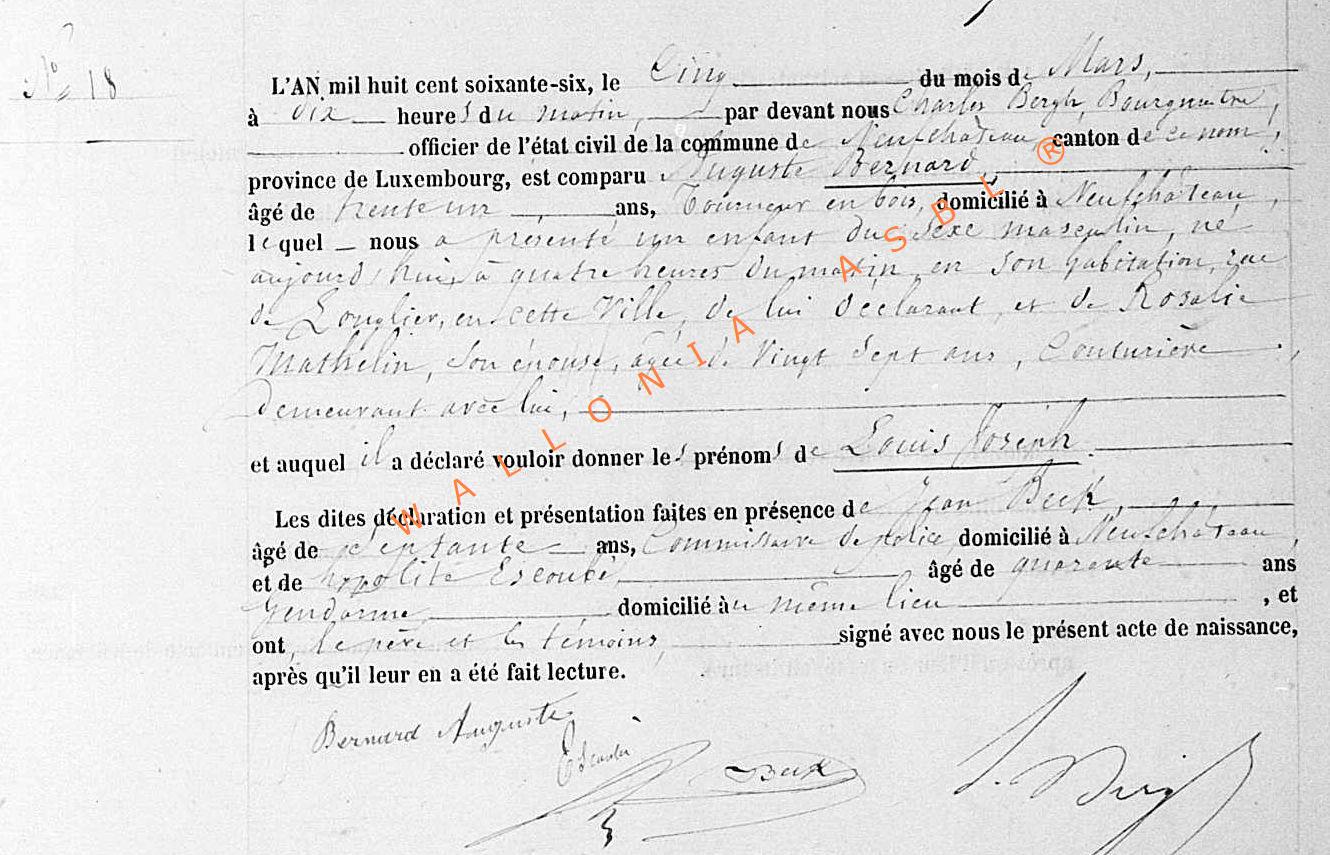 N° 18
L'AN mil huit cent soixante-six, le Cinq du mois de Mars,
à dix heures du matin, par devant nous Charles Bergh, Bourgmestre,
officier de l'état civil de la commune de Neufchâteau, canton de ce nom,
province de Luxembourg, est comparu Auguste Bernard,
âgé de trente un ans, Tourneur en bois, domicilié à Neufchâteau,
lequel nous a présenté un enfant du sexe masculin, né
aujourd'hui, à quatre heures du matin, en son habitation, rue
de Longlier, en cette Ville, de lui déclarant, et de Rosalie
Mathelin, son épouse, âgée de vingt sept ans, Couturière,
demeurant avec lui,
et auquel il a déclaré vouloir donner les prénoms de Louis Joseph.
Les dites déclaration et présentation faites en présence de Jean Beck,
âgé de septante ans, Commissaire de police, domicilié à Neufchâteau,
et de hypolite Escoubé âgé de quarante ans
gendarme domicilié au même lieu, et
ont, le père et les témoins, signé avec nous le présent acte de naissance,
après qu'il leur en a été fait lecture.
Bernard Auguste
Escoubé
Beck
WALLONIA ASBL ®